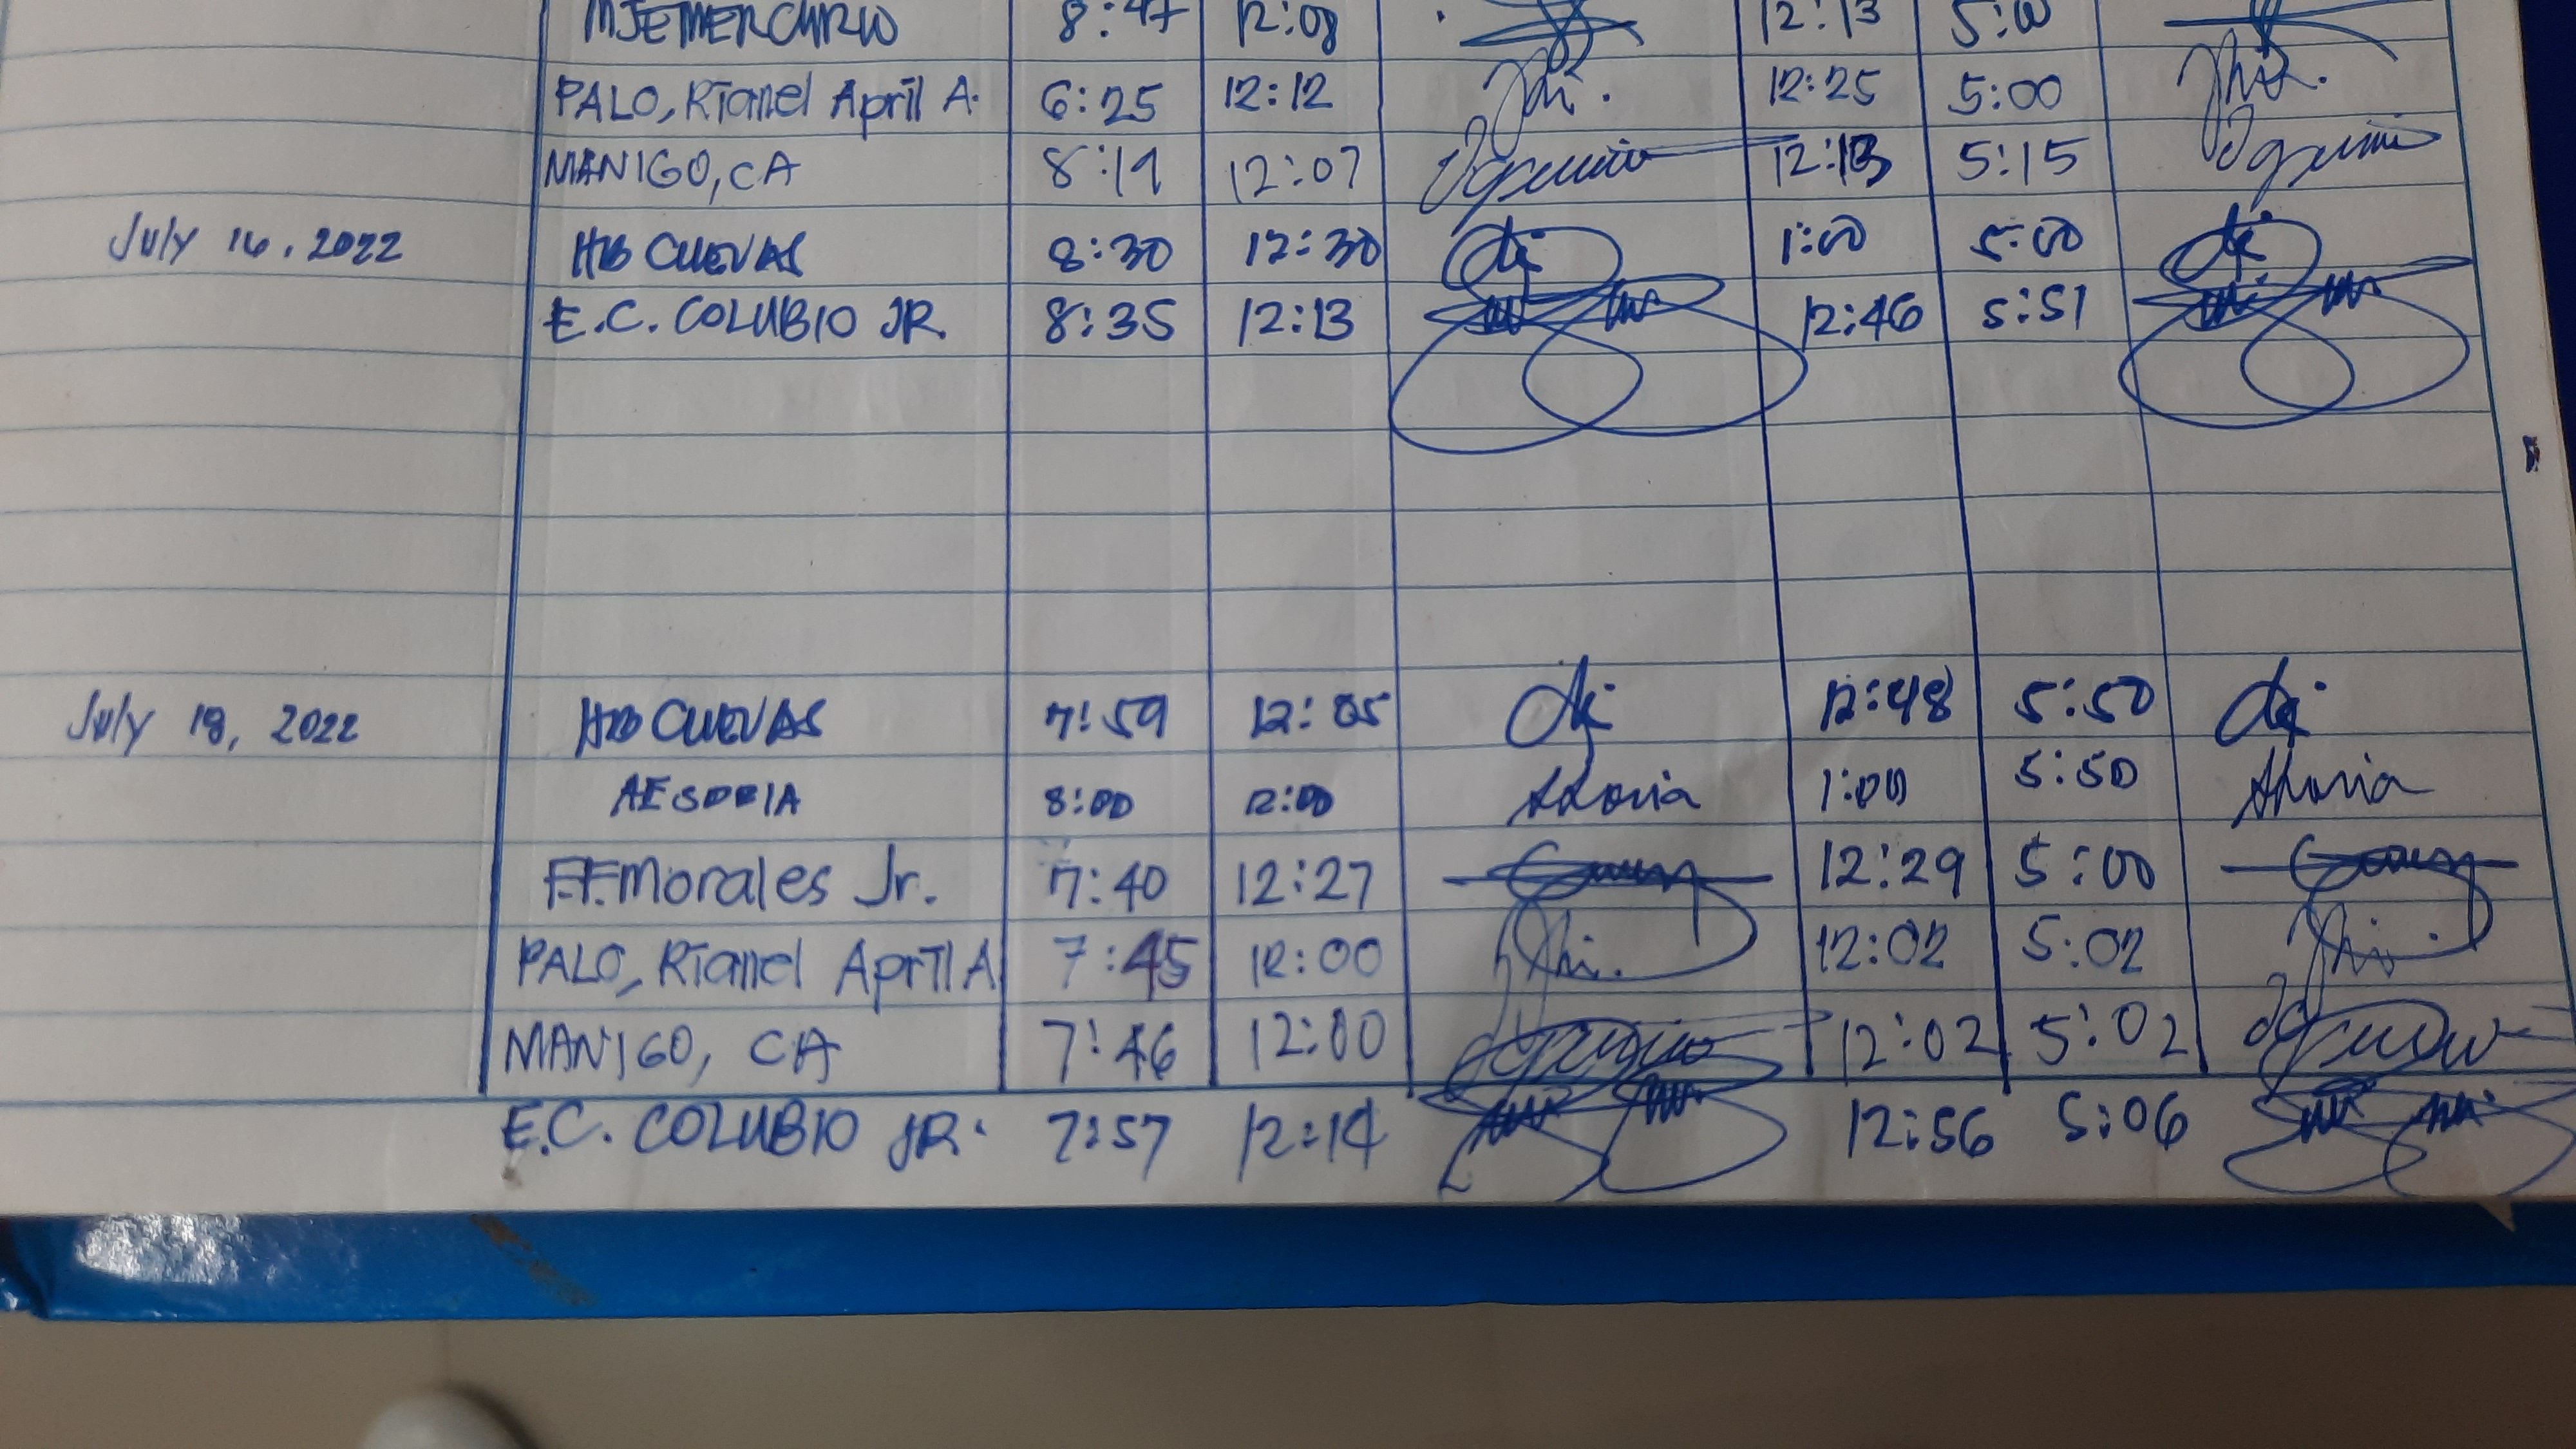 MJEMERCURIO 8:47 12:08 12:13 5:00
PALO, Rianel April A. 6:25 12:12 12:25 5:00
MANIGO, CA 8:19 12:07 12:13 5:15
July 16, 2022 HB CUEVAS 8:30 12:30 1:00 5:00
E.C. COLUBIO JR. 8:35 12:13 12:46 5:51
July 18, 2022 HB CUEVAS 7:59 12:05 12:48 5:50
AESORIA 8:00 12:00 1:00 5:50
F.F. Morales Jr. 7:40 12:27 12:29 5:00
PALO, Rianel April A 7:45 12:00 12:02 5:02
MANIGO, CA 7:46 12:00 12:02 5:02
E.C. COLUBIO JR. 7:57 12:14 12:56 5:06